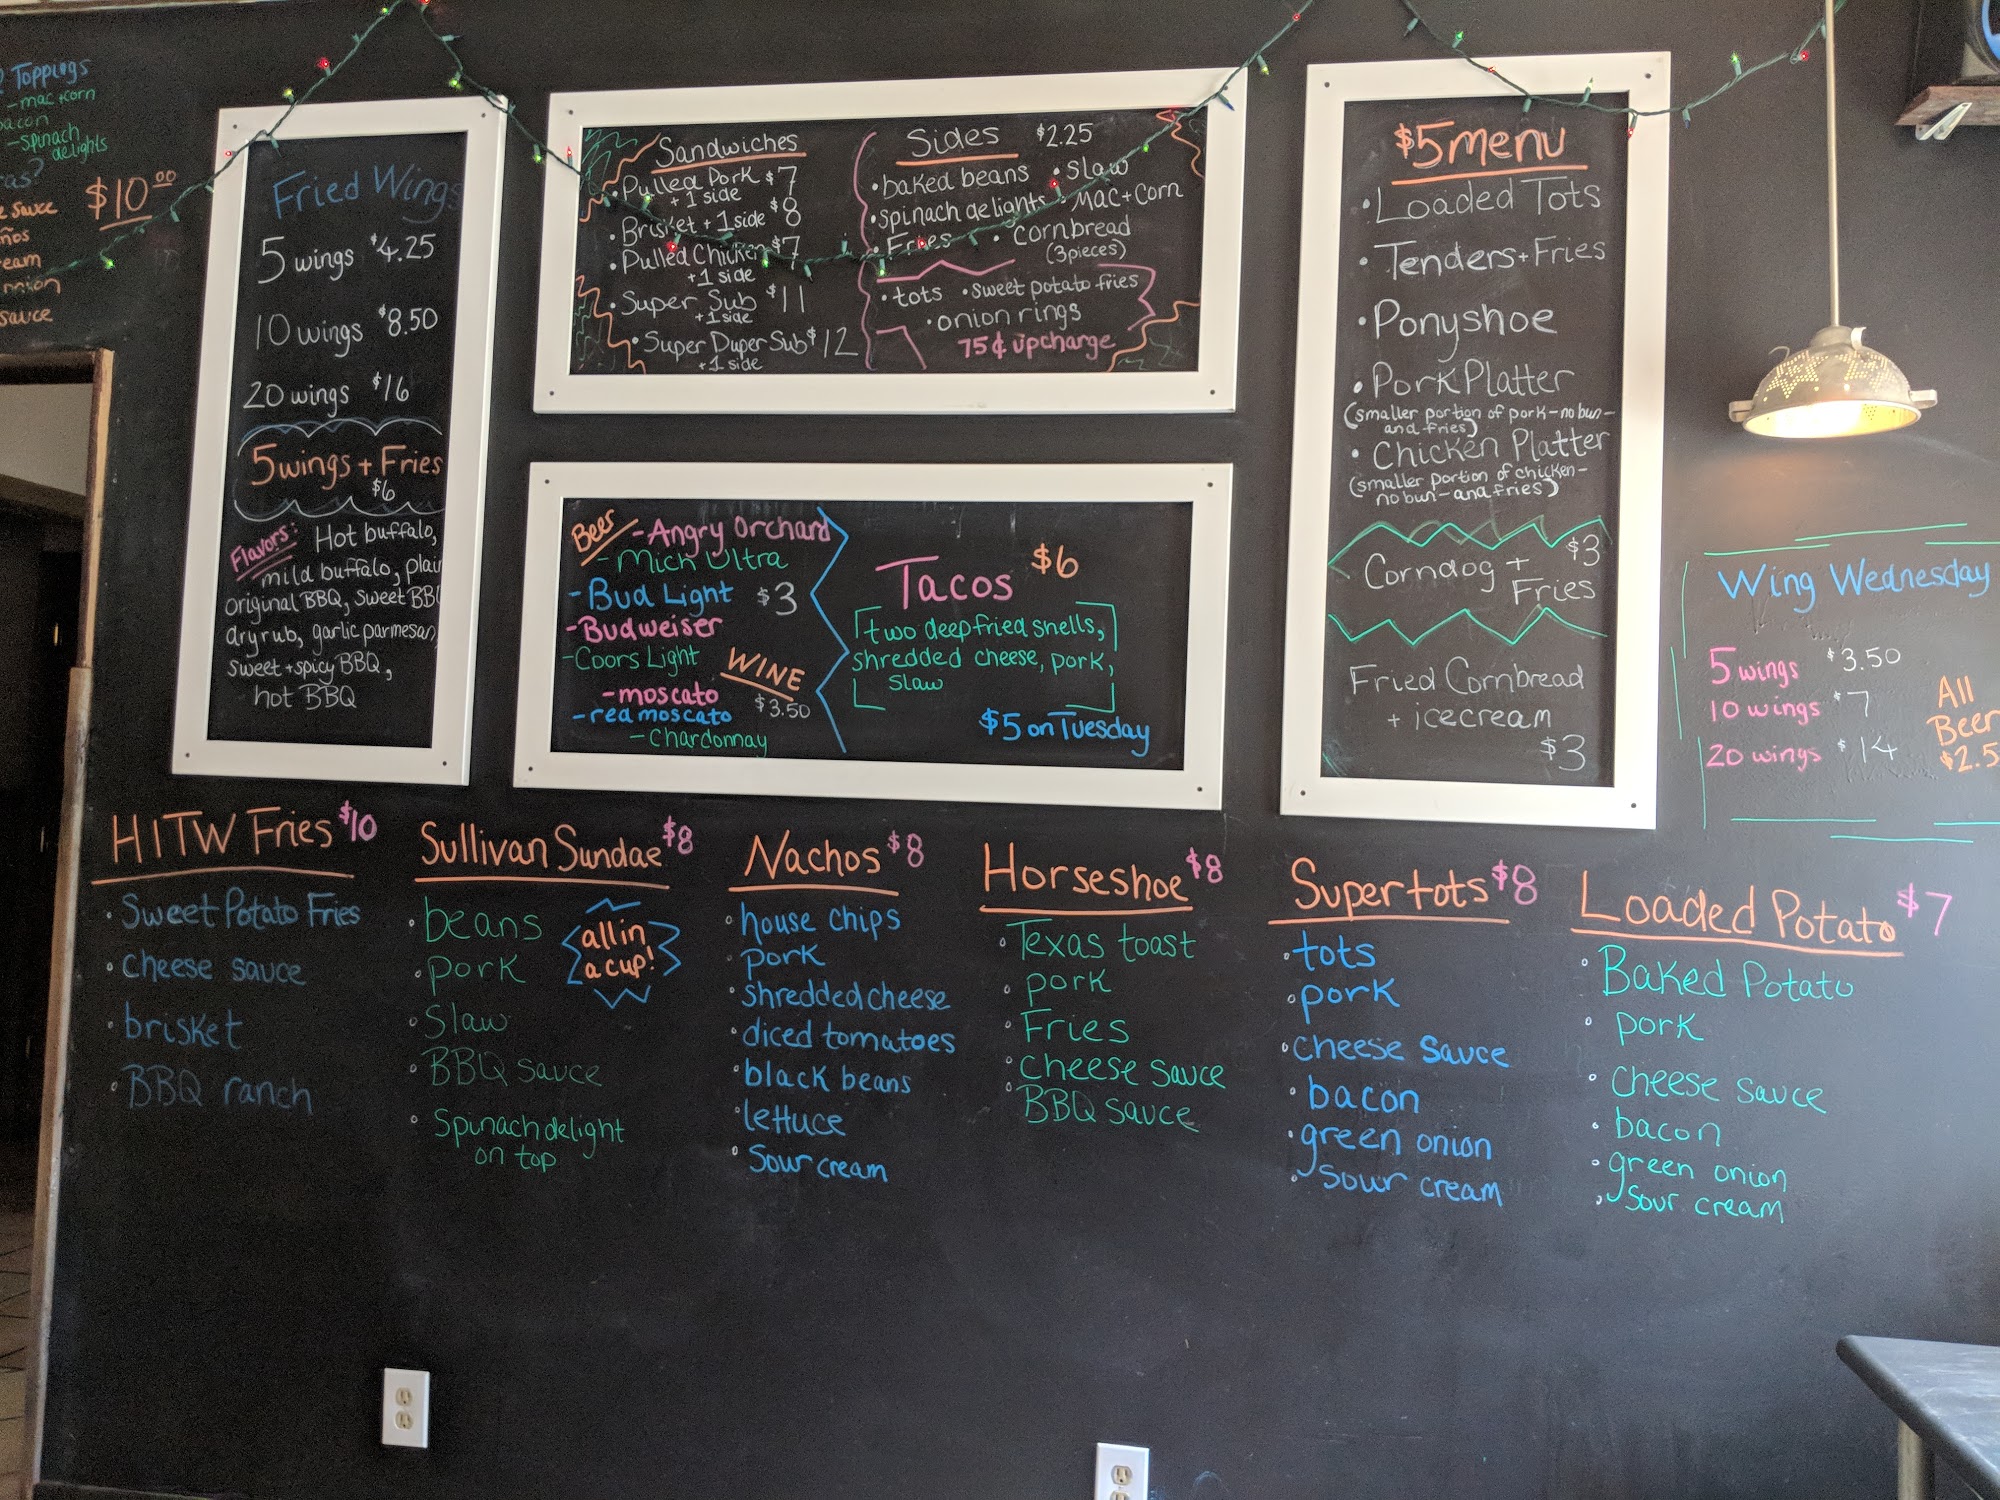 Toppings
- mac + corn
bacon
- spinach
delights
$10.00
sauce
onion
sauce
Fried Wings
5 wings $4.25
10 wings $8.50
20 wings $16
5 wings + Fries
$6
Flavors: Hot buffalo,
mild buffalo, plain
original BBQ, sweet BBQ
dry rub, garlic parmesan,
sweet + spicy BBQ,
hot BBQ
Sandwiches
• Pulled Pork $7
+ 1 side
• Brisket + 1 side $8
• Pulled Chicken $7
+ 1 side
• Super Sub $11
+ 1 side
• Super Duper Sub $12
+ 1 side
Sides $2.25
• baked beans • Slaw
• spinach delights • Mac + Corn
• Fries • cornbread
(3 pieces)
• tots • sweet potato fries
• onion rings
75¢ upcharge
Beer - Angry Orchard
- Mich Ultra
- Bud Light $3
- Budweiser
- Coors Light
WINE
$3.50
- moscato
- red moscato
- Chardonnay
Tacos $6
two deep fried shells,
shredded cheese, pork,
slaw
$5 on Tuesday
$5 menu
• Loaded Tots
• Tenders + Fries
• Ponyshoe
• Pork Platter
(smaller portion of pork - no bun -
and fries)
• Chicken Platter
(smaller portion of chicken -
no bun - and fries)
Corndog + $3
Fries
Fried Cornbread
+ icecream
$3
Wing Wednesday
5 wings $3.50
10 wings $7
20 wings $14
All
Beer
$2.5
HITW Fries $10
• Sweet Potato Fries
• cheese sauce
• brisket
• BBQ ranch
Sullivan Sundae $8
• beans
• pork
• Slaw
• BBQ sauce
• Spinach delight
on top
all in
a cup!
Nachos $8
• house chips
• pork
• shredded cheese
• diced tomatoes
• black beans
• lettuce
• Sour cream
Horseshoe $8
• Texas toast
• pork
• Fries
• Cheese sauce
• BBQ sauce
Supertots $8
• tots
• pork
• cheese sauce
• bacon
• green onion
• sour cream
Loaded Potato $7
• Baked Potato
• pork
• cheese sauce
• bacon
• green onion
• Sour cream